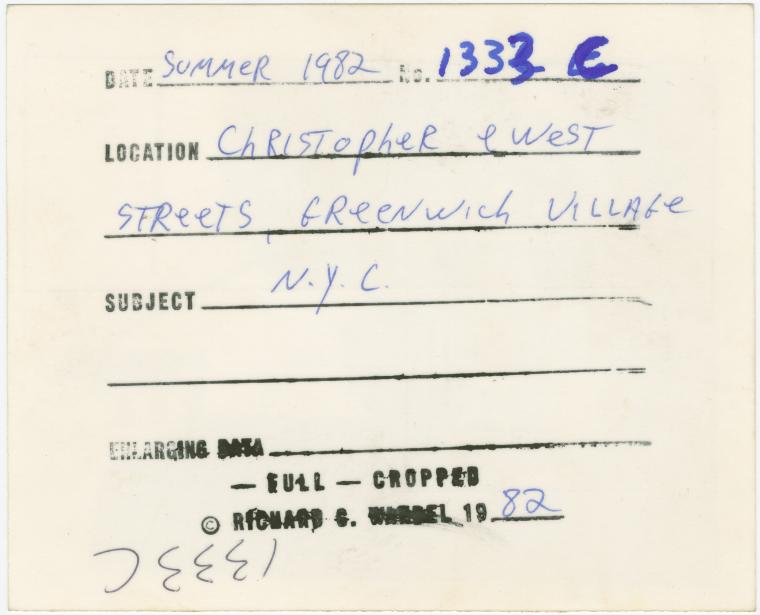 DATE SUMMER 1982 No. 1333 E
LOCATION ChRISTopheR & WeST
STReeTS, GReeNWich VILLAGe
SUBJECT N.Y.C.
ENLARGING DATA
— FULL — CROPPED
© RICHARD G. 19 82
1333 C